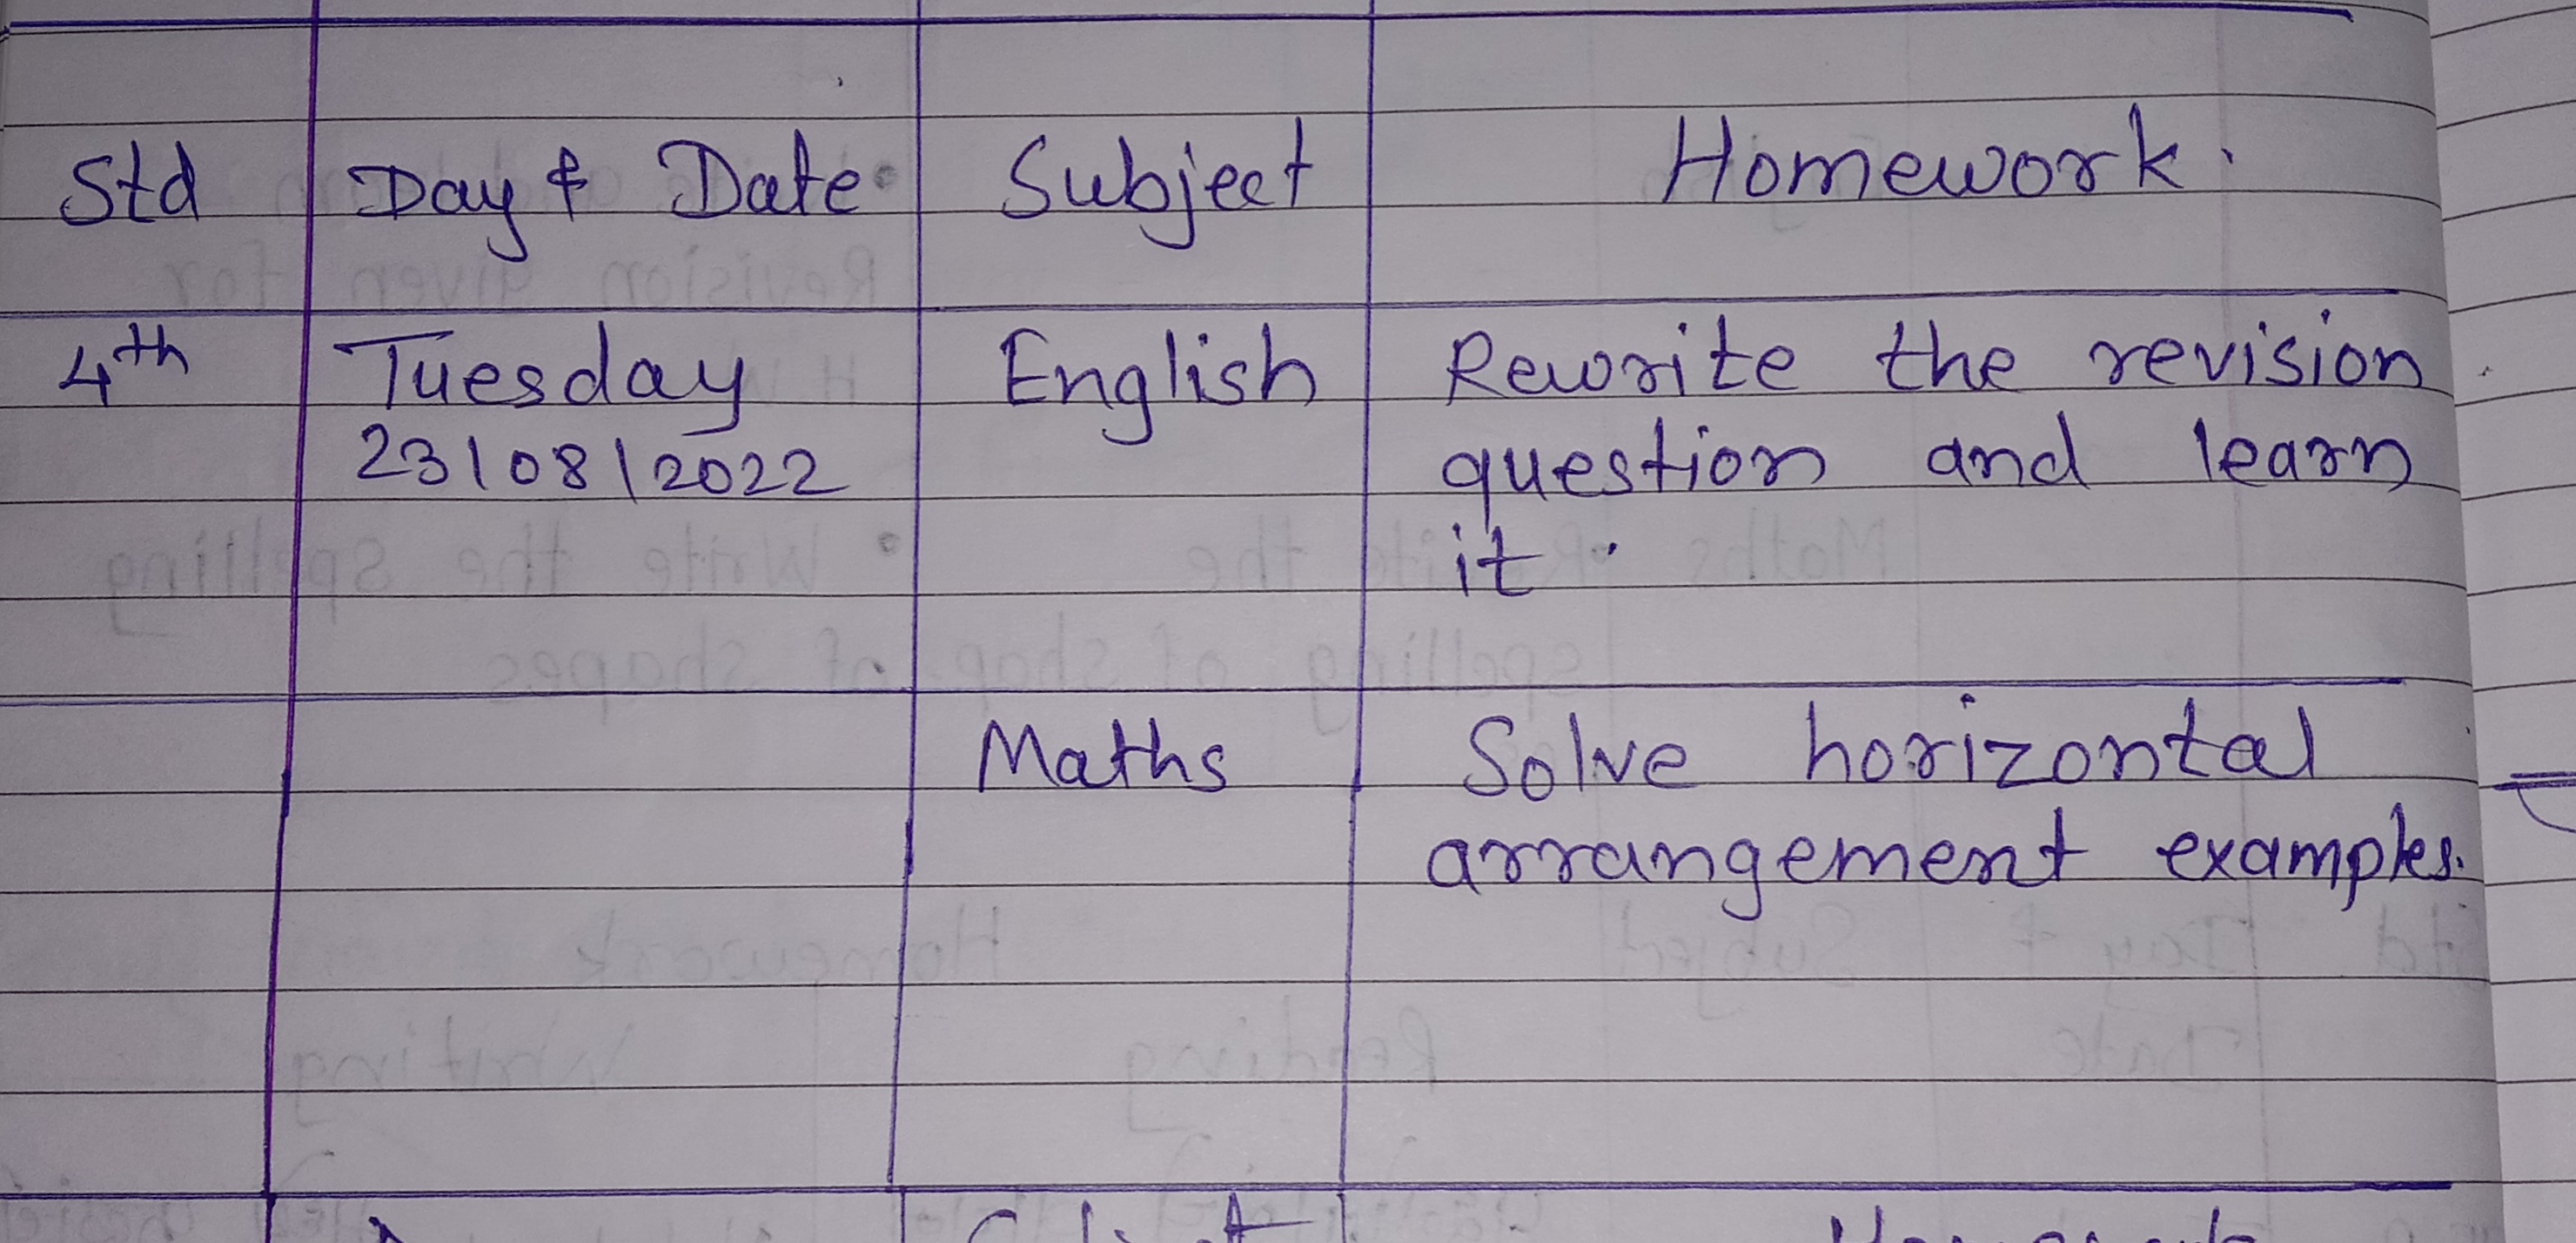 Std Day & Date Subject Homework.
4th Tuesday English Rewrite the revision
23/08/2022 question and learn
it.
Maths Solve horizontal
arrangement examples.